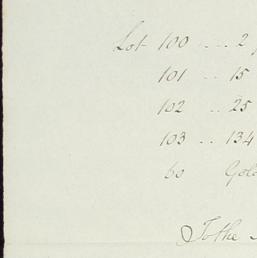 Lot 100 .... 2
101 .. 15
102 .. 25
103 .. 134
60 Gold
To the